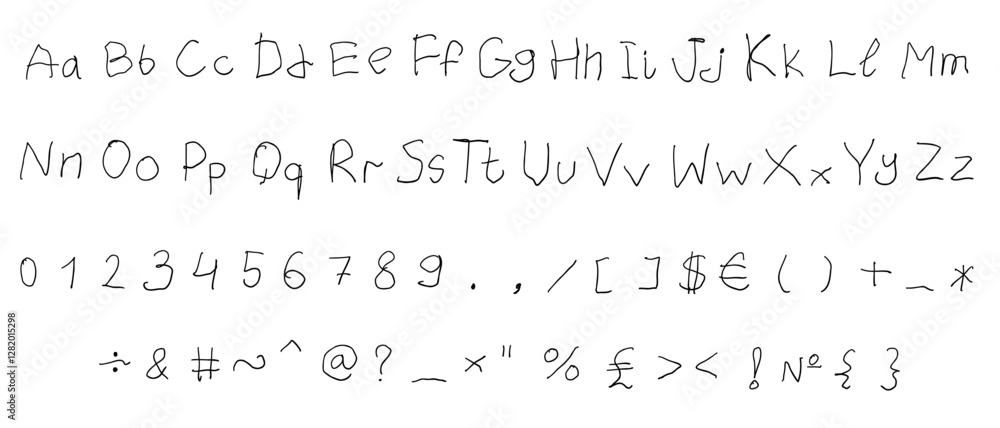 Aa Bb Cc Dd Ee Ff Gg Hh Ii Jj Kk Ll Mm
Nn Oo Pp Qq Rr Ss Tt Uu Vv Ww Xx Yy Zz
0 1 2 3 4 5 6 7 8 9 . , / [ ] $ € ( ) + _ *
÷ & # ~ ^ @ ? _ × " % £ > < ! № { }
Adobe Stock | #1282015298